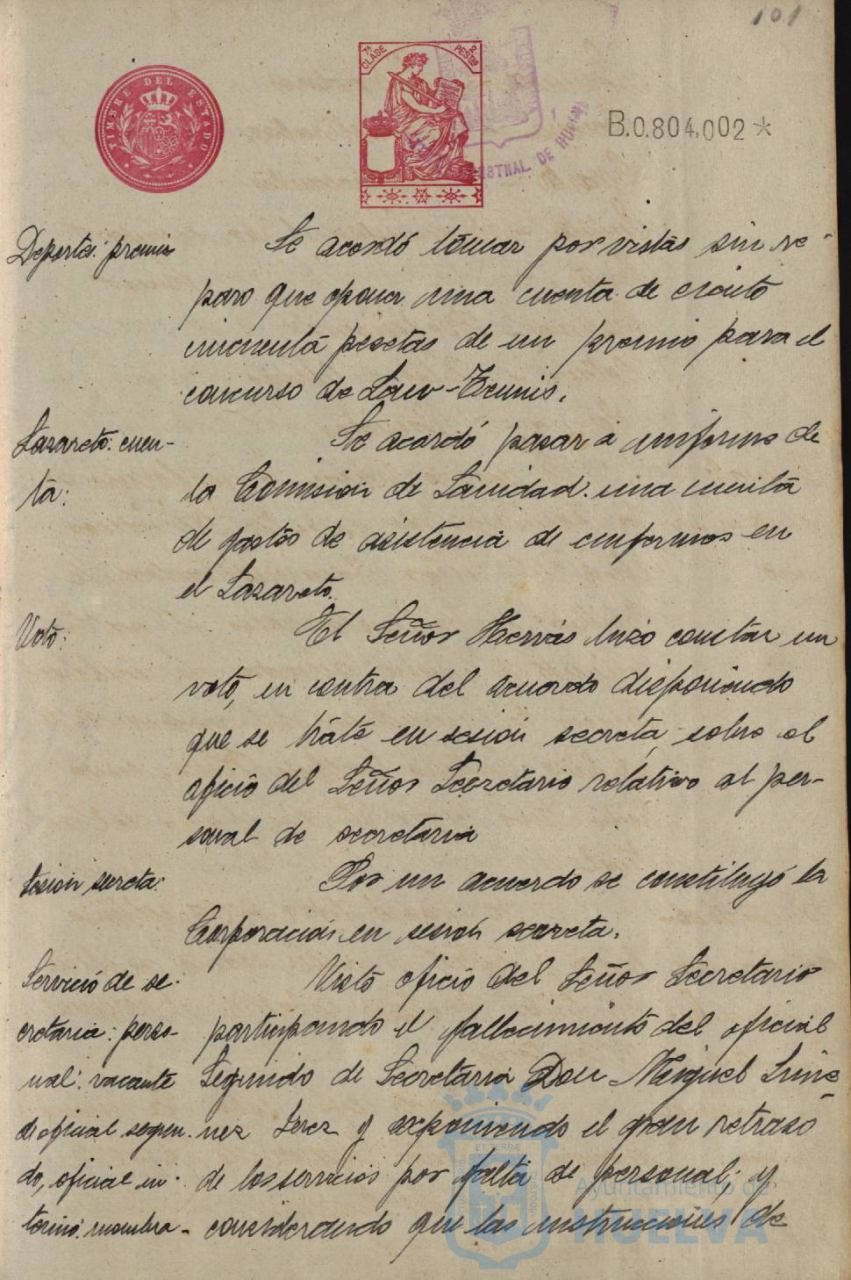 101
TIMBRE DEL ESTADO
7ª CLASE 2 PESETAS
B.0.804.002*
Deportes: premio
Se acordó tomar por vistas sin re-
paro que oponer una cuenta de ciento
cincuenta pesetas de un premio para el
concurso de Law-Tennis.
Lazareto: cuen-
ta:
Se acordó pasar a informe de
la Comisión de Sanidad una cuenta
de gastos de asistencia de enfermos en
el Lazareto.
Voto:
El Señor Hervás hizo constar un
voto, en contra del acuerdo disponiendo
que se trate en sesión secreta, sobre el
oficio del Señor Secretario relativo al per-
sonal de secretaria
Sesión secreta:
Por un acuerdo se constituyó la
Corporación en sesión secreta.
Servicio de se-
cretaria: perso-
nal: vacante
de oficial segun-
do, oficial in-
terino: nombra-
Visto oficio del Señor Secretario
participando el fallecimiento del oficial
Segundo de Secretaria Don Miguel Jimé-
nez Jerez y exponiendo el gran retraso
de los servicios por falta de personal; y
considerando que las instrucciones de
Ayuntamiento de
HUELVA